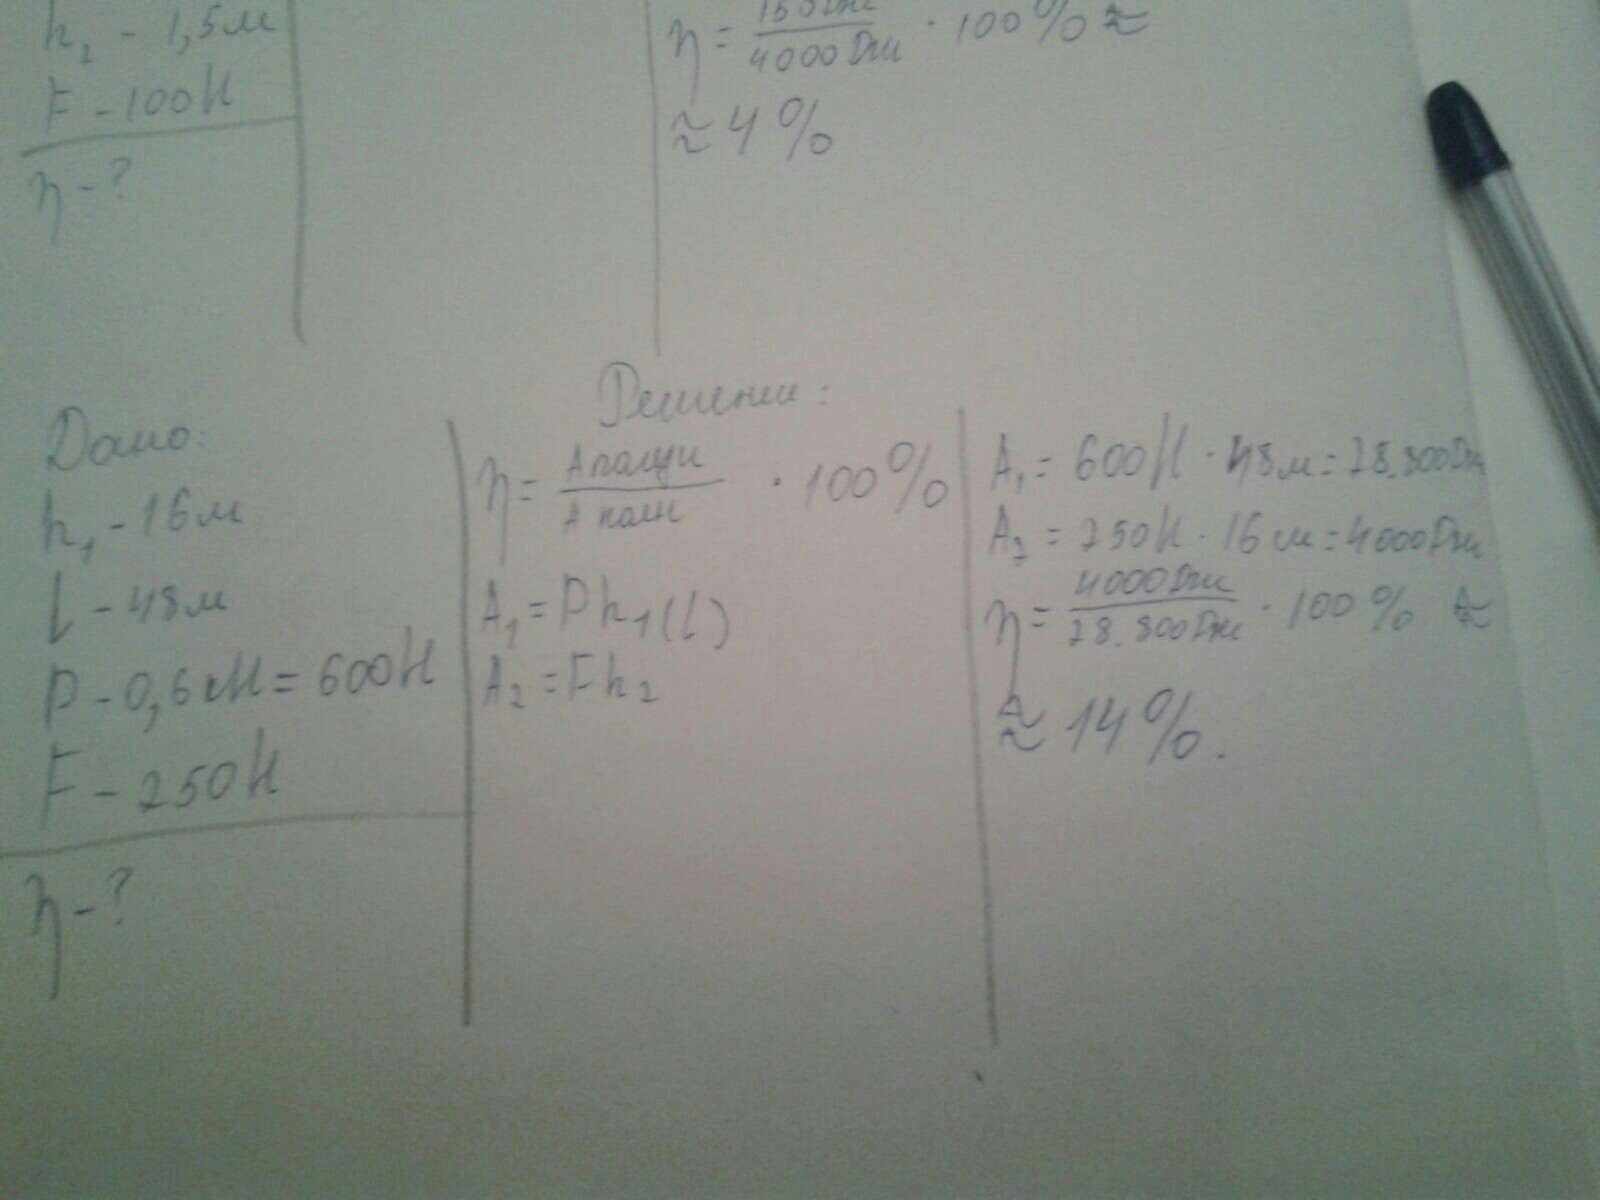 h₂ - 1,5м
F - 100Н
η - ?
η = 150Дж / 4000Дж · 100% ≈
≈ 4%
Дано:
h₁ - 16м
l - 48м
P - 0,6кН = 600Н
F - 250Н
η - ?
Решение:
η = Aполезн / Aполн · 100%
A₁ = Ph₁(l)
A₂ = Fh₂
A₁ = 600Н · 48м = 28.800Дж
A₂ = 250Н · 16м = 4000Дж
η = 4000Дж / 28.800Дж · 100% ≈
≈ 14%.